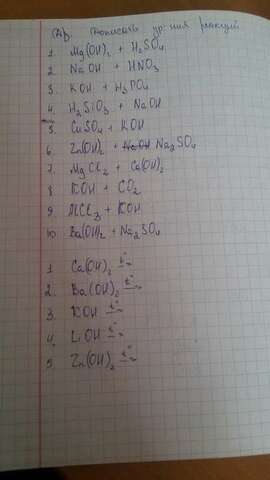 Дописать ур-ния реакций
1. Mg(OH)2 + H2SO4
2. NaOH + HNO3
3. KOH + H3PO4
4. H2SiO3 + NaOH
5. CuSO4 + KOH
6. Zn(OH)2 + Na2SO4
7. MgCl2 + Ca(OH)2
8. KOH + CO2
9. AlCl3 + KOH
10. Ba(OH)2 + Na2SO4
1. Ca(OH)2 t°
2. Ba(OH)2 t°
3. KOH t°
4. LiOH t°
5. Zn(OH)2 t°